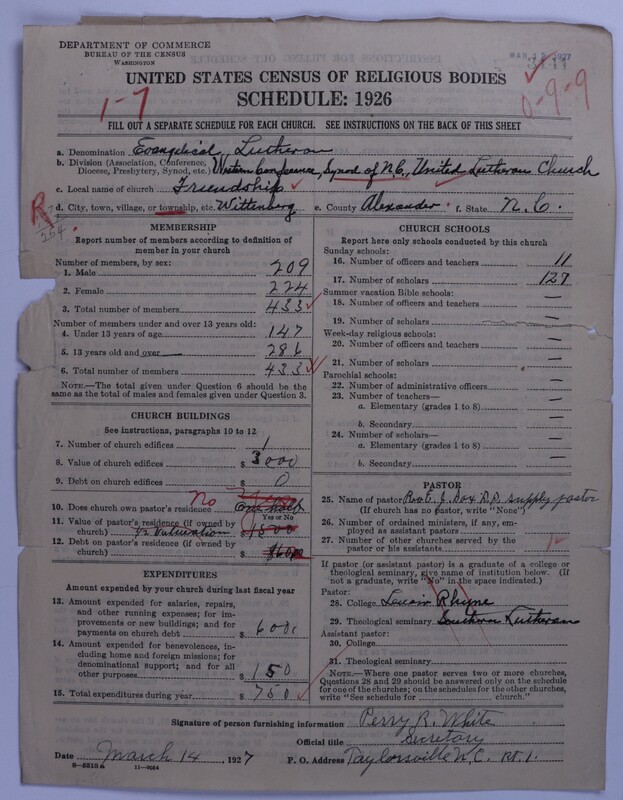 DEPARTMENT OF COMMERCE
BUREAU OF THE CENSUS
WASHINGTON
MAR 1 2 1927
UNITED STATES CENSUS OF RELIGIOUS BODIES
SCHEDULE: 1926
1-7
0-9-9
FILL OUT A SEPARATE SCHEDULE FOR EACH CHURCH. SEE INSTRUCTIONS ON THE BACK OF THIS SHEET
a. Denomination Evangelical Lutheran
b. Division (Association, Conference, Diocese, Presbytery, Synod, etc.) Western Conference, Synod of N.C., United Lutheran Church
c. Local name of church Friendship
d. City, town, village, or township, etc. Wittenberg e. County Alexander f. State N. C.
R
264
MEMBERSHIP
Report number of members according to definition of
member in your church
Number of members, by sex:
1. Male 209
2. Female 224
3. Total number of members 433
Number of members under and over 13 years old:
4. Under 13 years of age 147
5. 13 years old and over 286
6. Total number of members 433
NOTE.—The total given under Question 6 should be the
same as the total of males and females given under Question 3.
CHURCH BUILDINGS
See instructions, paragraphs 10 to 12
7. Number of church edifices 1
8. Value of church edifices $ 3000
9. Debt on church edifices $ 0
10. Does church own pastor's residence? No one half
Yes or No
11. Value of pastor's residence (if owned by
church) ½ Valuation $ 1500
12. Debt on pastor's residence (if owned by
church) $ 600
EXPENDITURES
Amount expended by your church during last fiscal year
13. Amount expended for salaries, repairs,
and other running expenses; for im-
provements or new buildings; and for
payments on church debt $ 600
14. Amount expended for benevolences, in-
cluding home and foreign missions; for
denominational support; and for all
other purposes $ 150
15. Total expenditures during year $ 750
CHURCH SCHOOLS
Report here only schools conducted by this church
Sunday schools:
16. Number of officers and teachers 11
17. Number of scholars 127
Summer vacation Bible schools:
18. Number of officers and teachers —
19. Number of scholars —
Week-day religious schools:
20. Number of officers and teachers —
21. Number of scholars —
Parochial schools:
22. Number of administrative officers —
23. Number of teachers—
a. Elementary (grades 1 to 8) —
b. Secondary —
24. Number of scholars—
a. Elementary (grades 1 to 8) —
b. Secondary —
PASTOR
25. Name of pastor J. Box D.D. supply pastor
(If church has no pastor, write "None")
26. Number of ordained ministers, if any, em-
ployed as assistant pastors
27. Number of other churches served by the
pastor or his assistants
If pastor (or assistant pastor) is a graduate of a college or
theological seminary, give name of institution below. (If
not a graduate, write "No" in the space indicated.)
Pastor:
28. College Lenoir Rhyne
29. Theological seminary Southern Lutheran
Assistant pastor:
30. College
31. Theological seminary
NOTE.—Where one pastor serves two or more churches,
Questions 28 and 29 should be answered only on the schedule
for one of the churches; on the schedules for the other churches,
write "See schedule for church."
Signature of person furnishing information Perry R. White
Official title Secretary
Date March 14 1927 P. O. Address Taylorsville N.C. Rt. 1.
8-5518a 11-9064